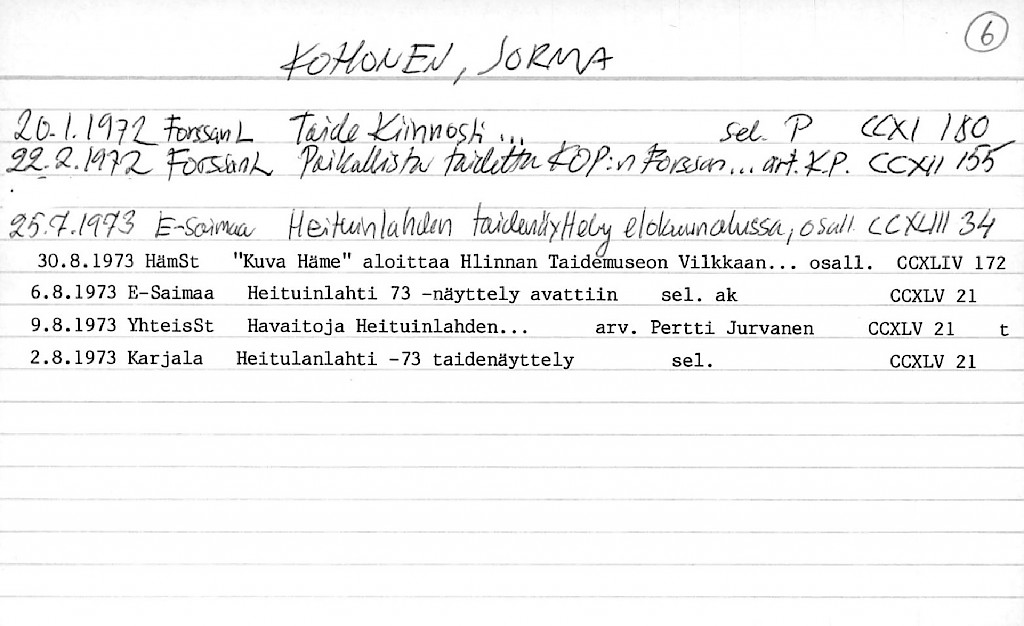 6
KOHONEN, JORMA
20.1.1972 Forssan L Taide Kiinnosti ... sel. P CCXI 180
22.2.1972 Forssan L Paikallista taidetta KOP:n Forssan... art. K.P. CCXII 155
25.7.1973 E-Saimaa Heituinlahden taidenäyttely elokuun alussa, osall. CCXLIII 34
30.8.1973 HämSt "Kuva Häme" aloittaa Hlinnan Taidemuseon Vilkkaan... osall. CCXLIV 172
6.8.1973 E-Saimaa Heituinlahti 73 -näyttely avattiin sel. ak CCXLV 21
9.8.1973 YhteisSt Havaitoja Heituinlahden... arv. Pertti Jurvanen CCXLV 21 t
2.8.1973 Karjala Heitulanlahti -73 taidenäyttely sel. CCXLV 21